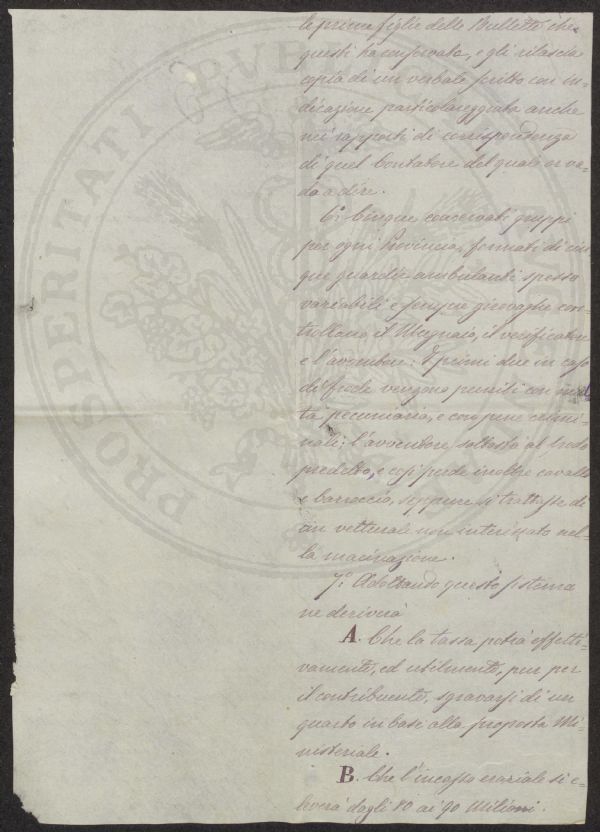 le prime figlie delle Bullette che
questi ha conservato, e gli rilascia
copia di un verbale scritto con in-
dicazione particolareggiata anche
nei rapporti di corrispondenza
di quel Contatore del quale or va-
do a dire.
6º. Cinque concervati gruppi
per ogni Provincia, formati di cin-
que guardie ambulanti spesso
variabili e sempre girovaghe con-
trollano il Mugnaio, il verificatore
e l'avventore: I primi due in caso
di frode vengono puniti con mul-
ta pecuniaria, e con pene crimi-
nali; l'avventore sottostà al modo
predetto, e così perde inoltre cavallo
e barroccio, seppure si trattasse di
un vetturale non interessato nel-
la macinazione.
7º. Adottando questo sistema
ne deriverà
A. Che la tassa potrà effetti-
vamente, ed utilmente, pur per
il contribuente, sgravarsi di un
quarto in base alla proposta Mi-
nisteriale.
B. Che l'incasso erariale si e-
leverà dagli 80 ai 90 Milioni.
PROSPERITATI PUB